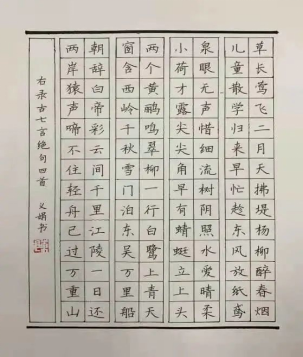 草长莺飞二月天拂堤杨柳醉春烟
儿童散学归来早忙趁东风放纸鸢
泉眼无声惜细流树阴照水爱晴柔
小荷才露尖尖角早有蜻蜓立上头
两个黄鹂鸣翠柳一行白鹭上青天
窗含西岭千秋雪门泊东吴万里船
朝辞白帝彩云间千里江陵一日还
两岸猿声啼不住轻舟已过万重山
右录古七言绝句四首 义娟书